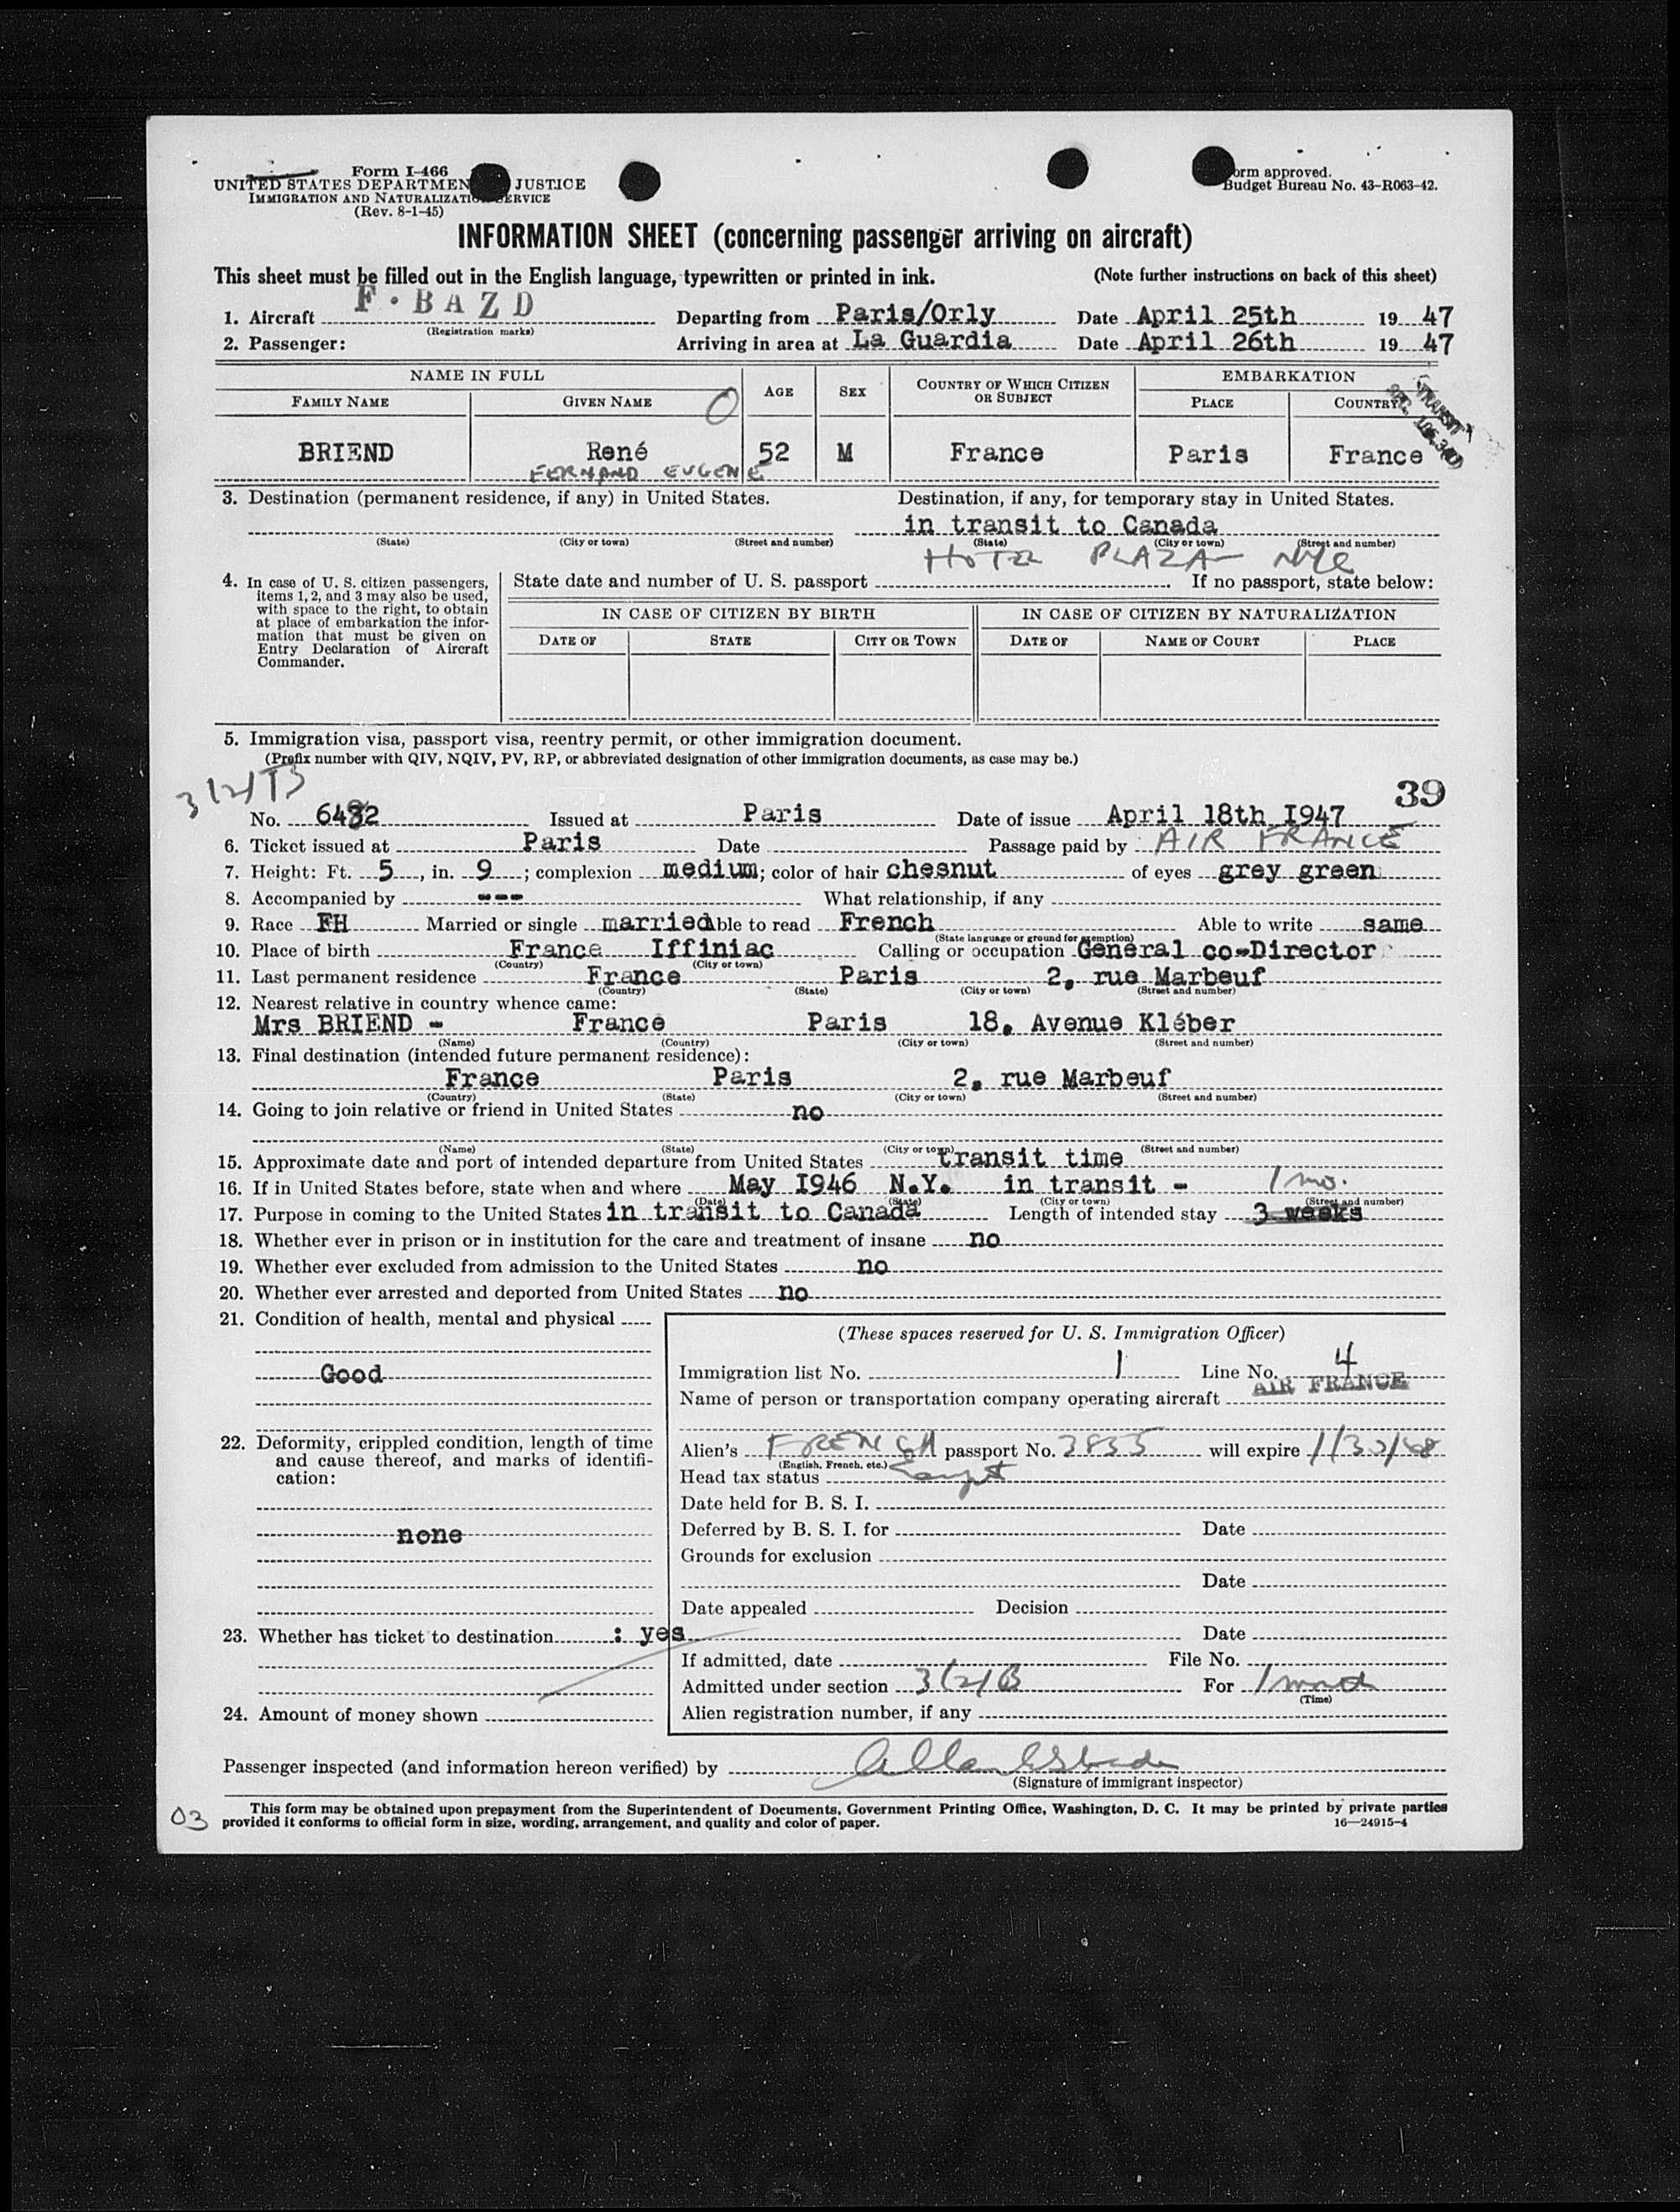 Form I-466
UNITED STATES DEPARTMEN JUSTICE
IMMIGRATION AND NATURALIZATIO SERVICE
(Rev. 8-1-45)
orm approved.
Budget Bureau No. 43-R063-42.
INFORMATION SHEET (concerning passenger arriving on aircraft)
This sheet must be filled out in the English language, typewritten or printed in ink. (Note further instructions on back of this sheet)
1. Aircraft F·BAZD Departing from Paris/Orly Date April 25th 19 47
(Registration marks)
2. Passenger: Arriving in area at La Guardia Date April 26th 19 47
NAME IN FULL AGE SEX COUNTRY OF WHICH CITIZEN OR SUBJECT EMBARKATION
FAMILY NAME GIVEN NAME PLACE COUNTRY
TRANSIT
BRIEND René 52 M France Paris France
FERNAND EUGENE
3. Destination (permanent residence, if any) in United States. Destination, if any, for temporary stay in United States.
in transit to Canada
(State) (City or town) (Street and number) (State) (City or town) (Street and number)
HOTEL PLAZA NYC
4. In case of U. S. citizen passengers, items 1, 2, and 3 may also be used, with space to the right, to obtain at place of embarkation the information that must be given on Entry Declaration of Aircraft Commander.
State date and number of U. S. passport If no passport, state below:
IN CASE OF CITIZEN BY BIRTH IN CASE OF CITIZEN BY NATURALIZATION
DATE OF STATE CITY OR TOWN DATE OF NAME OF COURT PLACE
5. Immigration visa, passport visa, reentry permit, or other immigration document.
(Prefix number with QIV, NQIV, PV, RP, or abbreviated designation of other immigration documents, as case may be.)
3(2)B
39
No. 6482 Issued at Paris Date of issue April 18th I947
6. Ticket issued at Paris Date Passage paid by AIR FRANCE
7. Height: Ft. 5, in. 9; complexion medium; color of hair chesnut of eyes grey green
8. Accompanied by --- What relationship, if any
9. Race FH Married or single married Able to read French Able to write same
(State language or ground for exemption)
10. Place of birth France Iffiniac Calling or occupation General co-Director
(Country) (City or town)
11. Last permanent residence France Paris 2, rue Marbeuf
(Country) (State) (City or town) (Street and number)
12. Nearest relative in country whence came:
Mrs BRIEND - France Paris 18, Avenue Kléber
(Name) (Country) (City or town) (Street and number)
13. Final destination (intended future permanent residence):
France Paris 2, rue Marbeuf
(Country) (State) (City or town) (Street and number)
14. Going to join relative or friend in United States no
(Name) (State) (City or town) (Street and number)
15. Approximate date and port of intended departure from United States transit time
16. If in United States before, state when and where May I946 N.Y. in transit - 1 mo.
(Date) (State) (City or town) (Street and number)
17. Purpose in coming to the United States in transit to Canada Length of intended stay 3 weeks
18. Whether ever in prison or in institution for the care and treatment of insane no
19. Whether ever excluded from admission to the United States no
20. Whether ever arrested and deported from United States no
21. Condition of health, mental and physical
Good
22. Deformity, crippled condition, length of time and cause thereof, and marks of identification:
none
23. Whether has ticket to destination : yes
24. Amount of money shown
(These spaces reserved for U. S. Immigration Officer)
Immigration list No. 1 Line No. 4
Name of person or transportation company operating aircraft AIR FRANCE
Alien's FRENCH passport No. 3835 will expire 1/30/48
(English, French, etc.)
Head tax status Exempt
Date held for B. S. I.
Deferred by B. S. I. for Date
Grounds for exclusion
Date
Date appealed Decision
Date
If admitted, date File No.
Admitted under section 3(2)B For 1 month
(Time)
Alien registration number, if any
Passenger inspected (and information hereon verified) by
(Signature of immigrant inspector)
03
This form may be obtained upon prepayment from the Superintendent of Documents, Government Printing Office, Washington, D. C. It may be printed by private parties
provided it conforms to official form in size, wording, arrangement, and quality and color of paper. 16—24915-4